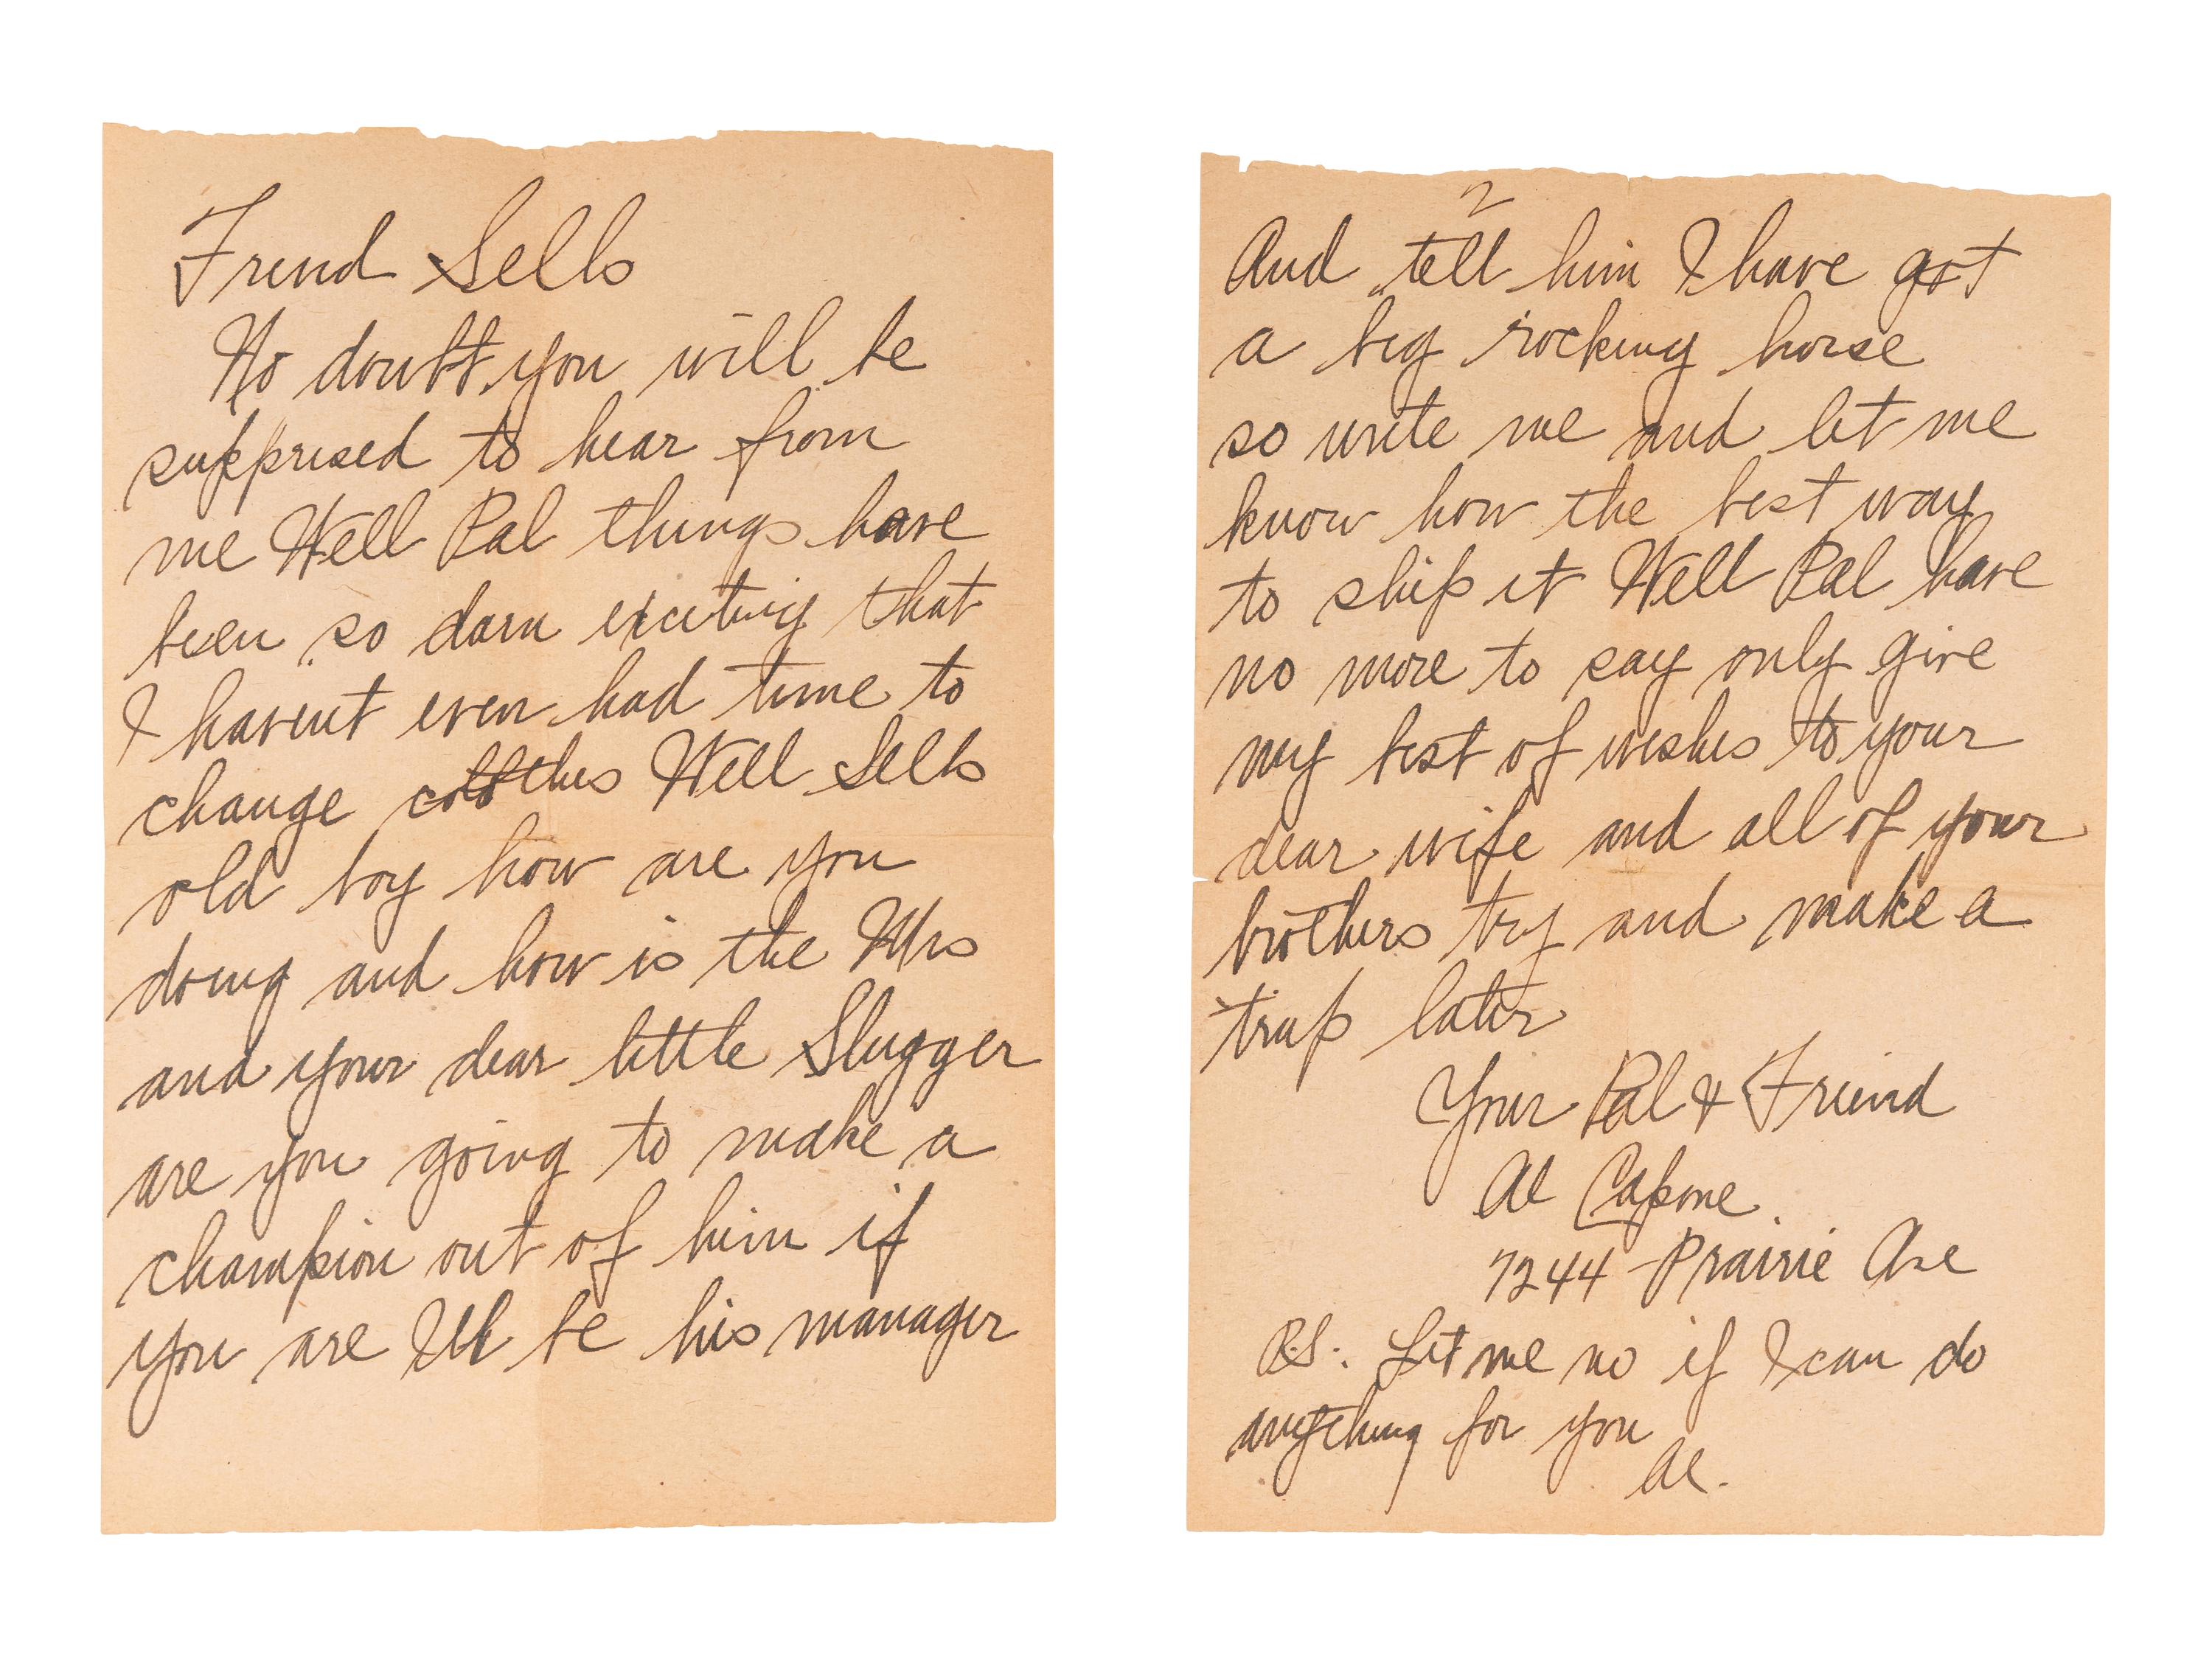 Frend Sells
No doubt you will be
supprised to hear from
me Well Pal things have
been so darn exciting that
I havent even had time to
change clothes Well Sells
old boy how are you
doing and how is the Mrs
and your dear little Slugger
are you going to make a
champion out of him if
you are Ill be his manager
2
And tell him I have got
a big rocking horse
so write me and let me
know how the best way
to ship it Well Pal have
no more to say only give
my best of wishes to your
dear wife and all of your
brothers try and make a
trip later
Your Pal & Friend
Al Capone.
7244 Prairie Ave
P.S. Let me no if I can do
anything for you
Al.